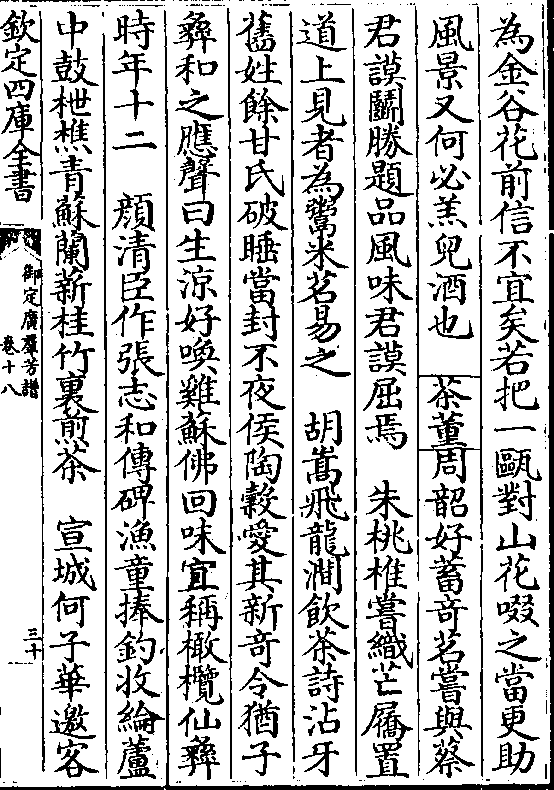 為金谷花前信不宜矣若把一甌對山花啜之當更助
風景又何必羔兒酒也　茶董周韶好蓄奇茗嘗與蔡
君謨鬬勝題品風味君謨屈焉　朱桃椎嘗織芒屩置
道上見者為鬻米茗易之　胡嵩飛龍澗飲茶詩沾牙
舊姓餘甘氏破睡當封不夜侯陶穀愛其新奇令猶子
彝和之應聲曰生涼好喚雞蘇佛回味宜稱橄欖仙彝
時年十二　顔清臣作張志和傳碑漁童捧釣收綸蘆
中鼓枻樵青蘇蘭薪桂竹裏煎茶　宣城何子華邀客
欽定四庫全書
御定廣羣芳譜
卷十八
三十